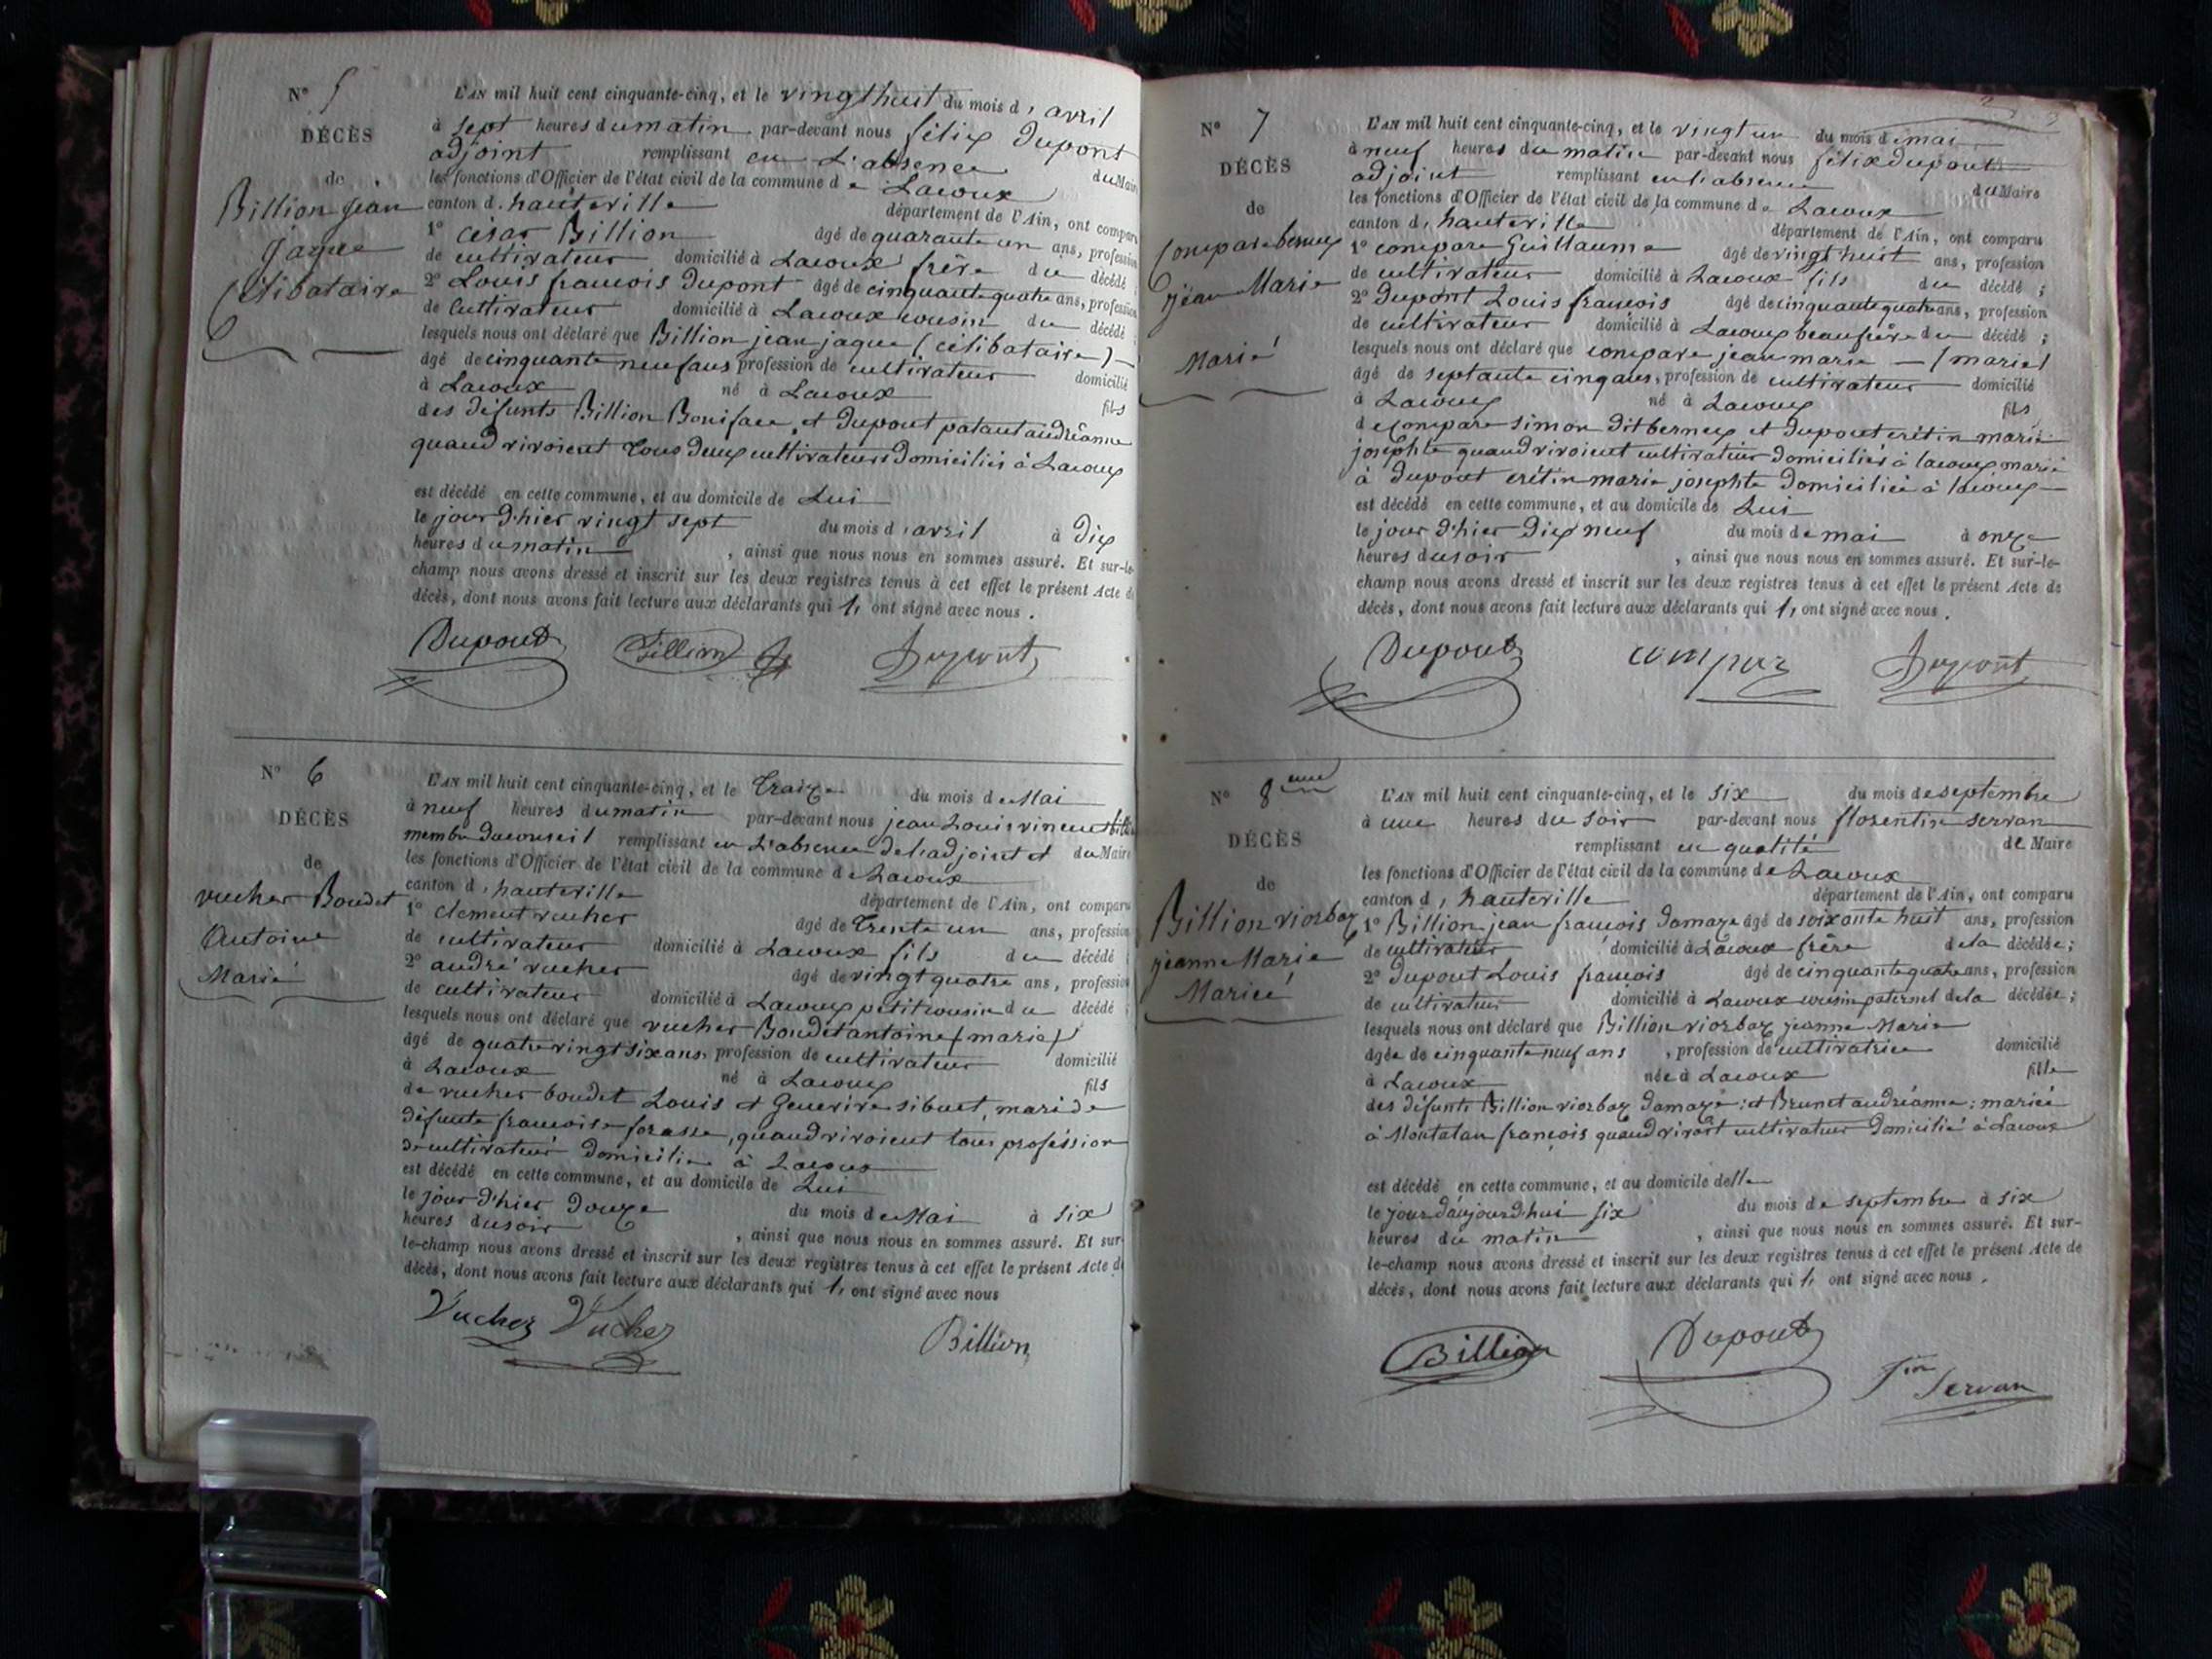 N° 5
DÉCÈS
de
Billion jean
jaque
Célibataire
L'AN mil huit cent cinquante-cinq, et le vingt huit du mois d' avril
à sept heures du matin par-devant nous félix Dupont
adjoint remplissant en L'absence du Maire
les fonctions d'Officier de l'état civil de la commune de Lacoux
canton d. hauteville département de l'Ain, ont comparu
1° César Billion âgé de quarante un ans, profession
de cultivateur domicilié à Lacoux frère du décédé ;
2° Louis francois Dupont âgé de cinquante quatre ans, profession
de Cultivateur domicilié à Lacoux cousin du décédé ;
lesquels nous ont déclaré que Billion jean jaque (célibataire)
âgé de cinquante neuf ans profession de cultivateur domicilié
à Lacoux né à Lacoux fils
des défunts Billion Boniface, et Dupont patant audréanne
quand vivoient tous deux cultivateurs domiciliés à Lacoux
est décédé en cette commune, et au domicile de Lui
le jour d'hier vingt sept du mois d'avril à dix
heures du matin, ainsi que nous nous en sommes assuré. Et sur-le-
champ nous avons dressé et inscrit sur les deux registres tenus à cet effet le présent Acte de
décès, dont nous avons fait lecture aux déclarants qui l, ont signé avec nous.
Dupont Billion Dupont
N° 6
DÉCÈS
de
vucher Boudet
Antoine
Marié
L'AN mil huit cent cinquante-cinq, et le Traize du mois de Mai
à neuf heures du matin par-devant nous jean Louis vincent
membre du conseil remplissant en L'absence de l'adjoint et du Maire
les fonctions d'Officier de l'état civil de la commune de Lacoux
canton d, hauteville département de l'Ain, ont comparu
1° clement vucher âgé de Trente un ans, profession
de cultivateur domicilié à Lacoux fils du décédé ;
2° andré vucher âgé de vingt quatre ans, profession
de cultivateur domicilié à Lacoux petit cousin du décédé ;
lesquels nous ont déclaré que vucher Boudet antoine (marié)
âgé de quatre vingt six ans, profession de cultivateur domicilié
à Lacoux né à Lacoux fils
de vucher boudet Louis et Genevive sibuet, mari de
défunte francoise forasse, quand vivoient tous profession
de cultivateur domicilié à Lacoux
est décédé en cette commune, et au domicile de Lui
le jour d'hier Douze du mois de Mai à six
heures du soir, ainsi que nous nous en sommes assuré. Et sur-
le-champ nous avons dressé et inscrit sur les deux registres tenus à cet effet le présent Acte de
décès, dont nous avons fait lecture aux déclarants qui l, ont signé avec nous
Vucher Vucher Billion
N° 7
DÉCÈS
de
Compare berneux
jean Marie
Marié
L'AN mil huit cent cinquante-cinq, et le vingt un du mois de mai
à neuf heures du matin par-devant nous félix dupont
adjoint remplissant en l'absence du Maire
les fonctions d'Officier de l'état civil de la commune de Lacoux
canton d, hauteville département de l'Ain, ont comparu
1° compare Guillaume âgé de vingt huit ans, profession
de cultivateur domicilié à Lacoux fils du décédé ;
2° Dupont Louis francois âgé de cinquante quatre ans, profession
de cultivateur domicilié à Lacoux beau frère du décédé ;
lesquels nous ont déclaré que compare jean marie — (marié)
âgé de septante cinq ans, profession de cultivateur domicilié
à Lacoux né à Lacoux fils
de Compare simon dit berneux et dupont crétin marie
josephte quand vivoient cultivateur domiciliés à lacoux marié
à dupont crétin marie josephte domiciliée à lacoux
est décédé en cette commune, et au domicile de Lui
le jour d'hier Dix neuf du mois de mai à onze
heures du soir, ainsi que nous nous en sommes assuré. Et sur-le-
champ nous avons dressé et inscrit sur les deux registres tenus à cet effet le présent Acte de
décès, dont nous avons fait lecture aux déclarants qui l, ont signé avec nous.
Dupont compar Dupont
N° 8eme
DÉCÈS
de
Billion viorbaz
jeanne Marie
Mariée
L'AN mil huit cent cinquante-cinq, et le six du mois de septembre
à une heures du soir par-devant nous florentin servan
remplissant en qualité de Maire
les fonctions d'Officier de l'état civil de la commune de Lacoux
canton d, hauteville département de l'Ain, ont comparu
1° Billion jean francois Damaze âgé de soixante huit ans, profession
de cultivateur domicilié à Lacoux frère de la décédée ;
2° Dupont Louis francois âgé de cinquante quatre ans, profession
de cultivateur domicilié à Lacoux cousin paternel de la décédée ;
lesquels nous ont déclaré que Billion viorbaz jeanne Marie
âgée de cinquante neuf ans, profession de cultivatrice domicilié
à Lacoux née à Lacoux fille
des défunts Billion viorbaz Damaze : et Brunet audréanne : mariée
à Montatan françois quand vivoit cultivateur domicilié à Lacoux
est décédé en cette commune, et au domicile delle
le jour d'aujourd'hui six du mois de septembre à six
heures du matin, ainsi que nous nous en sommes assuré. Et sur-
le-champ nous avons dressé et inscrit sur les deux registres tenus à cet effet le présent Acte de
décès, dont nous avons fait lecture aux déclarants qui l, ont signé avec nous.
Billion Dupont fin Servan